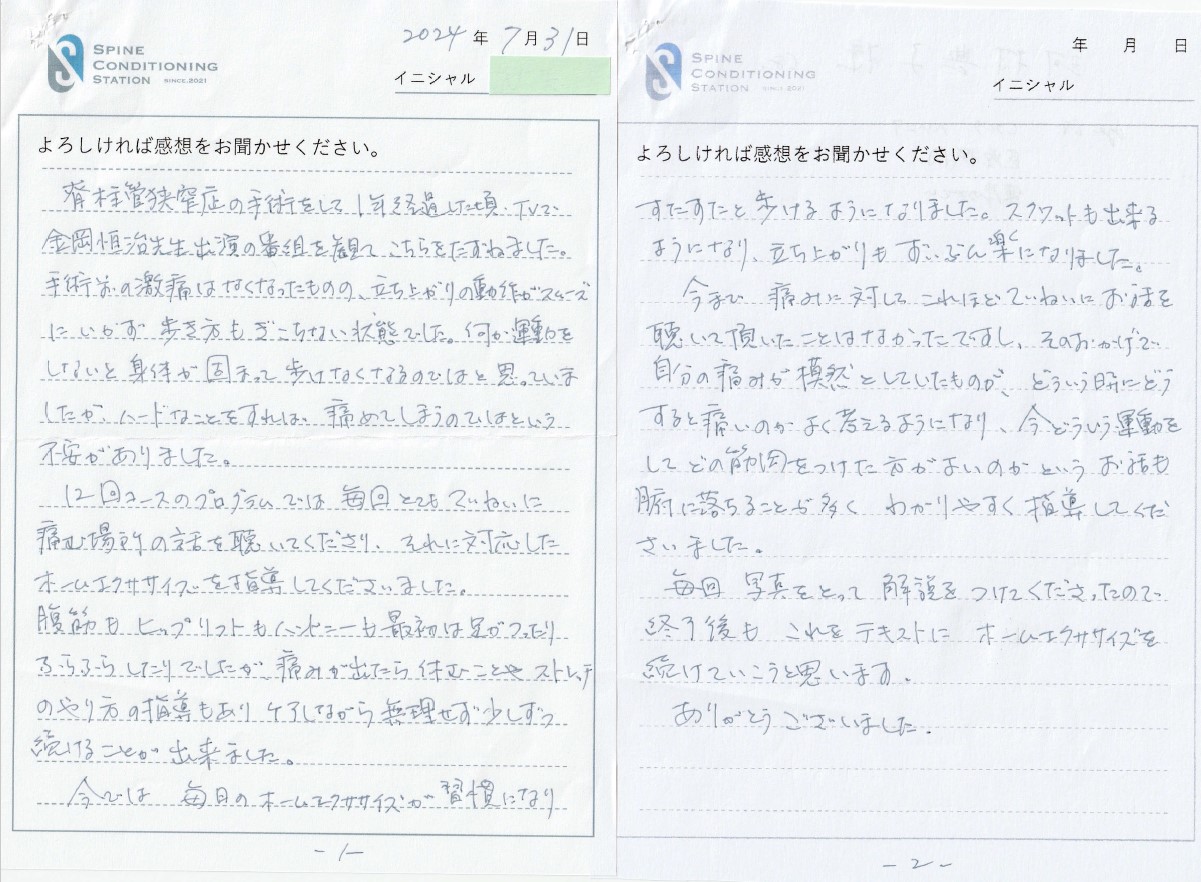 SPINE
CONDITIONING
STATION SINCE.2021
2024年7月31日
イニシャル
よろしければ感想をお聞かせください。
脊柱管狭窄症の手術をして1年経過した頃、TVで
金岡恒治先生出演の番組を観て、こちらをたずねました。
手術前の激痛はなくなったものの、立ち上がりの動作がスムーズ
にいかず 歩き方もぎこちない状態でした。何か運動を
しないと身体が固まって歩けなくなるのではと思っていま
したが、ハードなことをすれば、痛めてしまうのではという
不安がありました。
12回コースのプログラムでは 毎回とてもていねいに
痛む場所の話を聴いてくださり、それに対応した
ホームエクササイズを指導してくださいました。
腹筋も ヒップリフトも ハンドニーも 最初は足がつったり
ふらふらしたりでしたが、痛みが出たら休むことや ストレッチ
のやり方の指導もあり ケアしながら 無理せず少しずつ
続けることが 出来ました。
今では 毎日のホームエクササイズが 習慣になり
-1-
SPINE
CONDITIONING
STATION SINCE.2021
年 月 日
イニシャル
よろしければ感想をお聞かせください。
すたすたと歩けるようになりました。スクワットも出来る
ようになり、立ち上がりも ずいぶん楽になりました。
今まで 痛みに対して これほどていねいに お話を
聴いて頂いたことはなかったですし、そのおかげで
自分の痛みが 模然としていたものが、どういう時にどう
すると痛いのか よく考えるようになり、今どういう運動を
して どの筋肉をつけた方がよいのか という お話も
腑に落ちることが多く わかりやすく 指導してくだ
さいました。
毎回 写真をとって 解説を つけてくださったので
終了後も これを テキストに ホームエクササイズを
続けていこうと思います。
ありがとうございました。
-2-